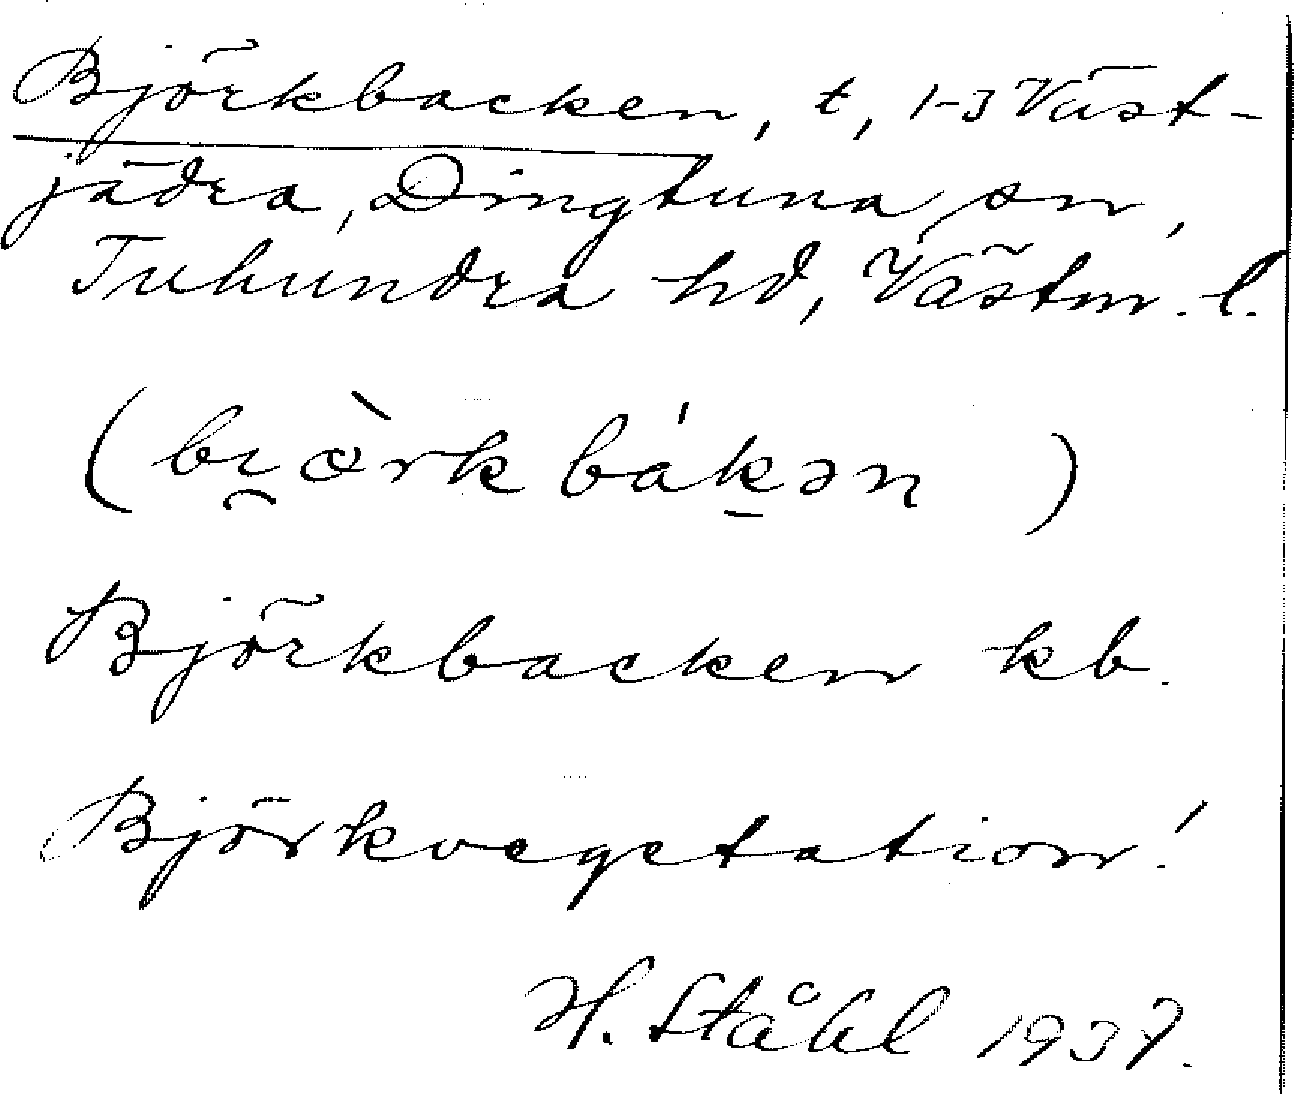 Björkbacken, t, 1-3 Väst-
jädra, Dingtuna sn,
Tuhundra hd, Västm. l.
(bi̯ö̀rkbák̠ən)
Björkbacken kb.
Björkvegetation!
H. Ståhl 1937.